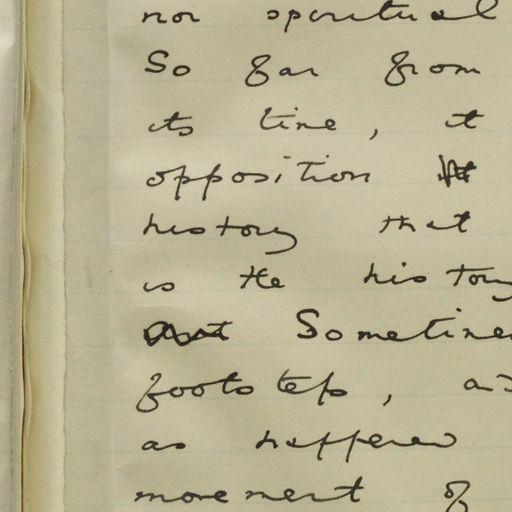 nor spiritual
So far from
its time, it
opposition
history that
is the history
Sometimes
footsteps,
as happened
movement of